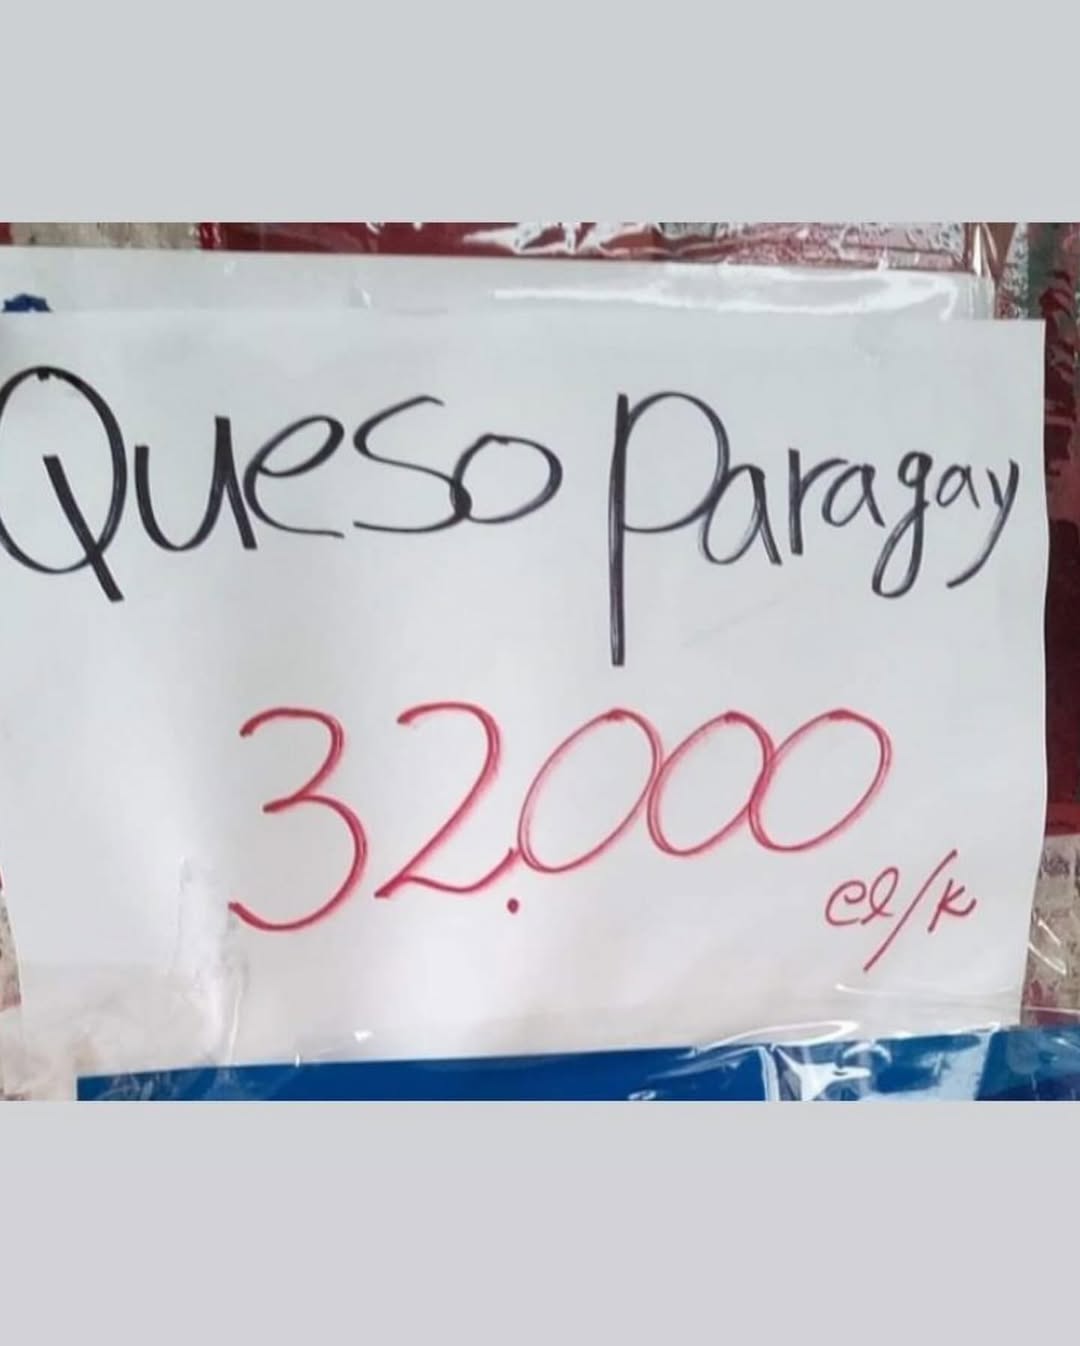 Queso Paragay
32.000
el/k